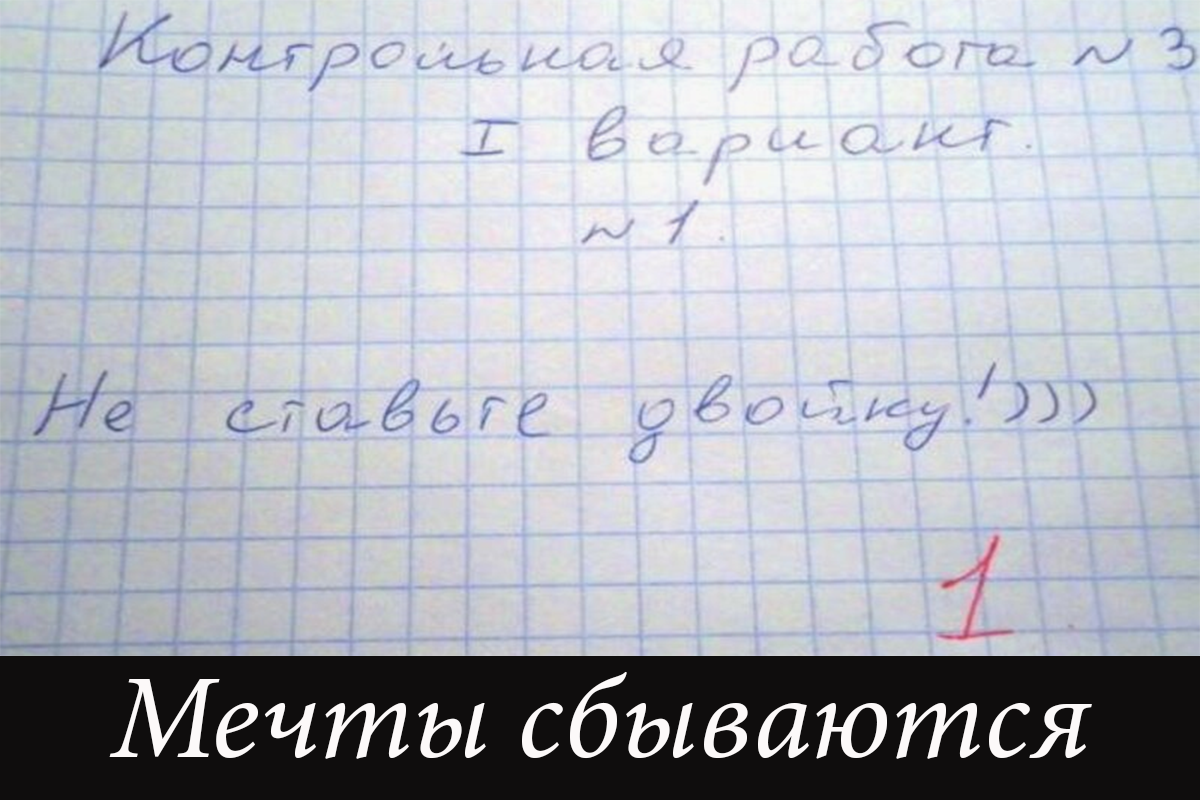 Контрольная работа N 3
I вариант.
N 1.
Не ставьте двойку!)))
1
Мечты сбываются